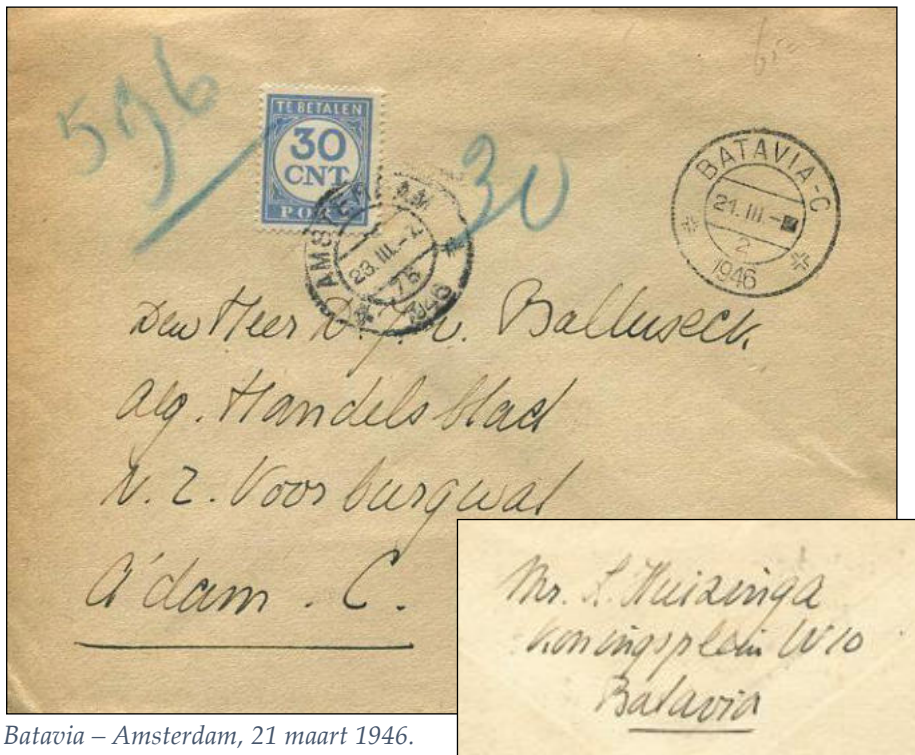 596
TE BETALEN
30
CNT
PORT
30
BATAVIA-C
21.III.-
2
1946
AMSTERDAM
23.III.-
1946
Den Heer D. J. v. Balluseck
Alg. Handelsblad
N. Z. Voorburgwal
A'dam. C.
Mr. L. Huizinga
Koningsplein W 10
Batavia
Batavia – Amsterdam, 21 maart 1946.